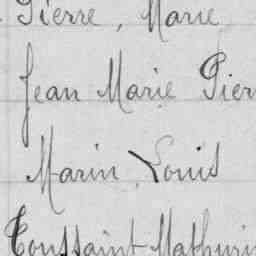 Pierre, Marie
Jean Marie Pier
Marin Louis
Toussaint Mathurin